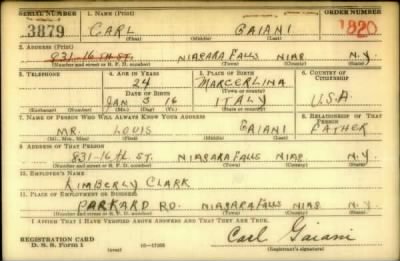 SERIAL NUMBER 1. NAME (Print) ORDER NUMBER
3879 CARL GAIANI 1820
(First) (Middle) (Last)
2. ADDRESS (Print)
831-16TH ST. NIAGARA FALLS NIAG. N.Y.
(Number and street or R. F. D. number) (Town) (County) (State)
3. TELEPHONE 4. AGE IN YEARS 5. PLACE OF BIRTH 6. COUNTRY OF CITIZENSHIP
24 MARCERLINA
DATE OF BIRTH (Town or county)
JAN 3 16 ITALY U.S.A.
(Exchange) (Number) (Mo.) (Day) (Yr.) (State or country)
7. NAME OF PERSON WHO WILL ALWAYS KNOW YOUR ADDRESS 8. RELATIONSHIP OF THAT PERSON
MR. LOUIS GAIANI FATHER
(Mr., Mrs., Miss) (First) (Middle) (Last)
9. ADDRESS OF THAT PERSON
831-16th. ST. NIAGARA FALLS NIAG. N.Y.
(Number and street or R. F. D. number) (Town) (County) (State)
10. EMPLOYER'S NAME
KIMBERLY CLARK
11. PLACE OF EMPLOYMENT OR BUSINESS
PARKARD RD. NIAGARA FALLS NIAG. N.Y.
(Number and street or R. F. D. number) (Town) (County) (State)
I AFFIRM THAT I HAVE VERIFIED ABOVE ANSWERS AND THAT THEY ARE TRUE.
REGISTRATION CARD
D. S. S. Form 1 (over) Carl Gaiani
(Registrant's signature)